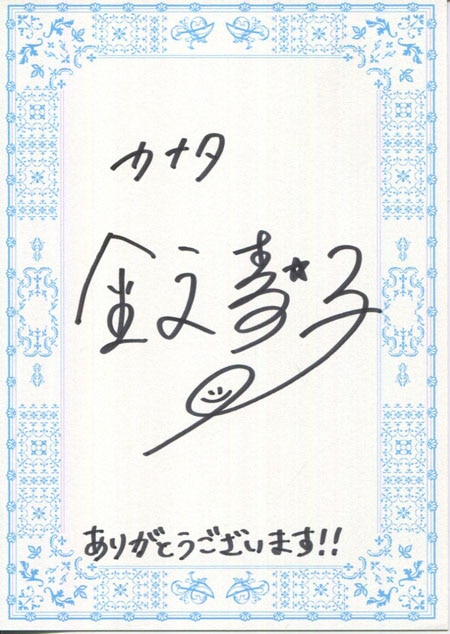 カナタ
金元寿☆子
ありがとうございます!!